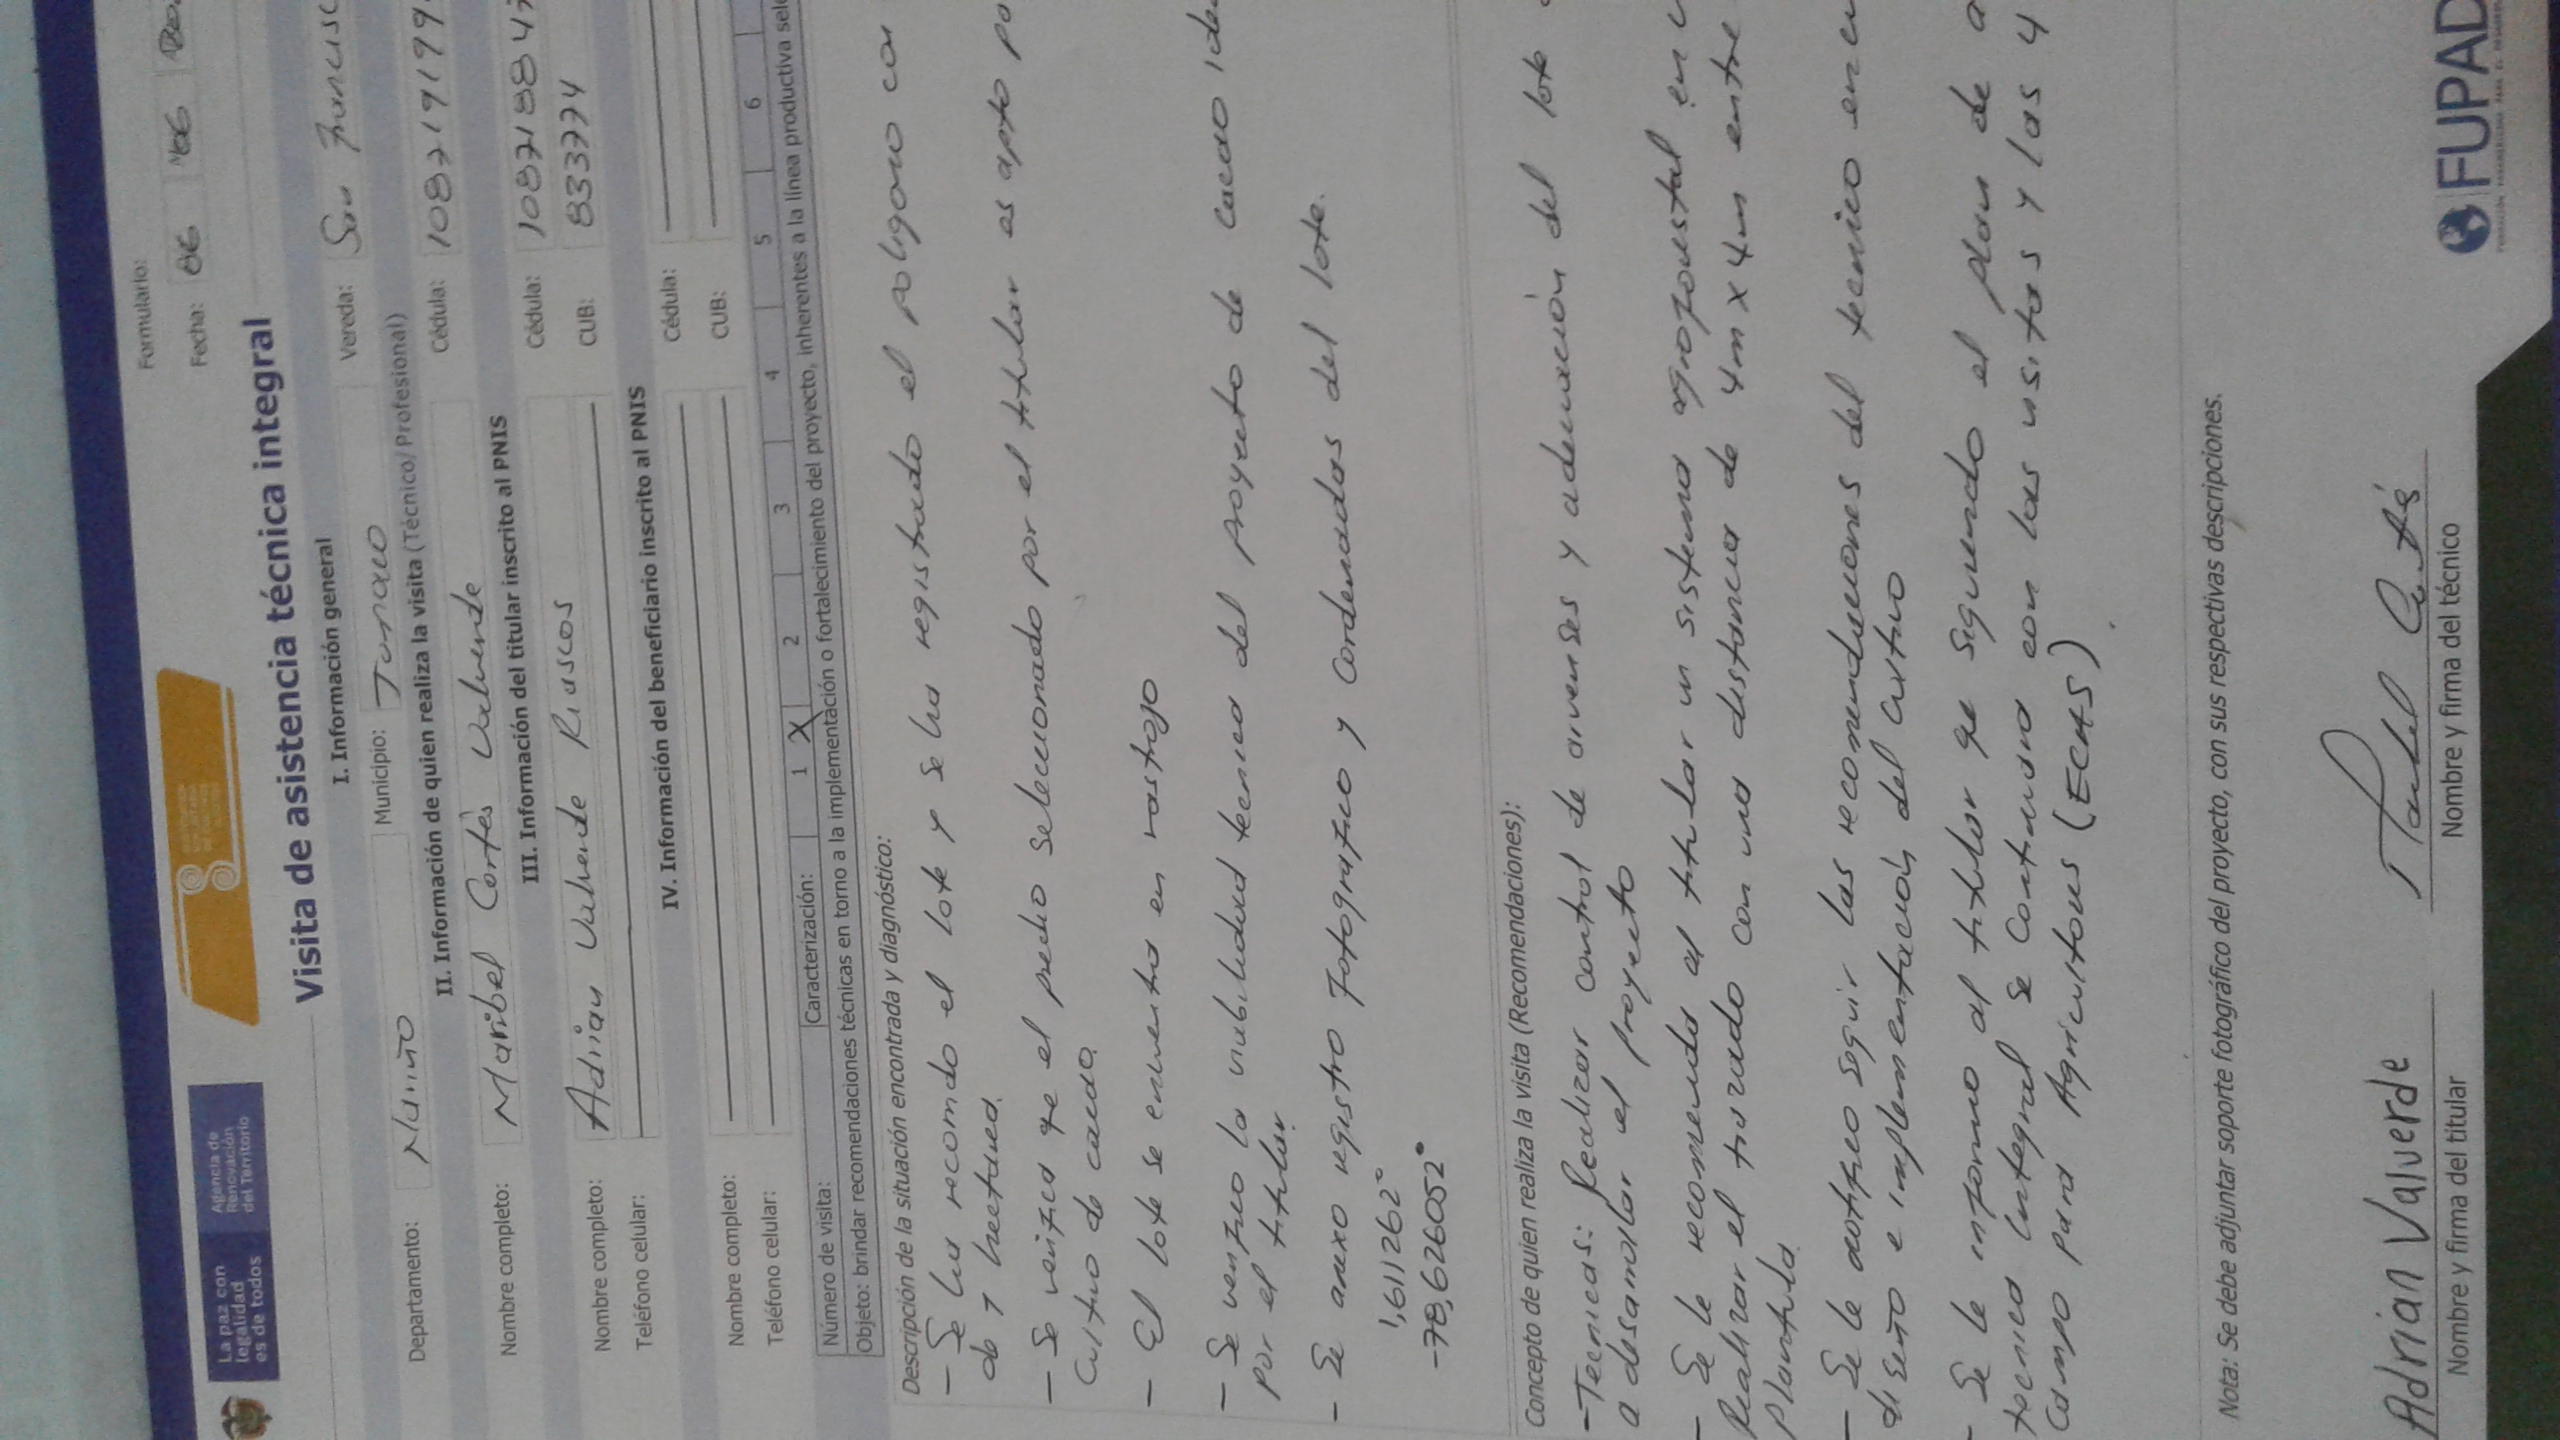 La paz con
legalidad
es de todos
Agencia de
Renovación
del Territorio
Formulario:
Fecha: 06
Visita de asistencia técnica integral
I. Información general
Departamento: Nariño Municipio: Tumaco Vereda: San Francisc
II. Información de quien realiza la visita (Técnico/ Profesional)
Nombre completo: Maribel Cortès Valverde Cédula: 108719199
III. Información del titular inscrito al PNIS
Nombre completo: Adrian Valverde Riascos Cédula: 10871884
Teléfono celular: CUB: 833774
IV. Información del beneficiario inscrito al PNIS
Nombre completo: Cédula:
Teléfono celular: CUB:
Número de visita: Caracterización: 1 X 2 3 4 5 6
Objeto: brindar recomendaciones técnicas en torno a la implementación o fortalecimiento del proyecto, inherentes a la línea productiva sele
Descripción de la situación encontrada y diagnóstico:
- Se ha recorrido el lote y se ha registrado el poligono con
de 1 hectarea.
- Se verifica qe el predio seleccionado por el titular es apto pa
Cultivo de cacao.
- El lote se encuentra en rastrojo
- Se verifico la viabilidad tecnica del proyecto de cacao ide
por el titular
- Se anexo registro Fotografico y Cordenadas del lote.
1,6111262°
-78,626052°
Concepto de quien realiza la visita (Recomendaciones):
-Tecnicas: Realizar control de arvenses y adecuación del lote
a desarrollar el proyecto
- Se le recomienda al titular un sistema agroforestal en
Realizar el trazado con una distancia de 4m x 4m entre
Plantula.
- Se le notifico seguir las recomendaciones del tecnico en cu
diseño e implementación del cultivo
- Se le informo al titular qe siguiendo el plan de a
tecnica integral se continuara con las visitas y las 4
Campo para Agricultores (ECAS)
Nota: Se debe adjuntar soporte fotográfico del proyecto, con sus respectivas descripciones.
Adrian Valverde
Nombre y firma del titular
Maribel Cortés
Nombre y firma del técnico
FUPAD